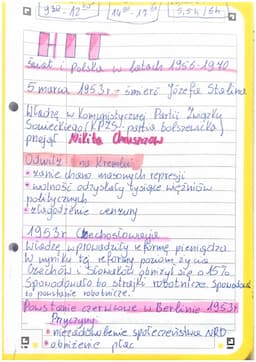 9³⁰-12
5,5h / 6h
HIT
Świat i Polska w latach 1956-1970
5 marca 1953r - śmierć Józefa Stalina
Władzę w Komunistycznej Partii Związku
Sowieckiego (KPZS - partia bolszewicka)
przejął Nikita Chruszczow
Odwilż na Kremlu
• zaniechano masowych represji
• wolność odzyskały tysiące więźniów
politycznych
• złagodzenie cenzury
1953r Czechosłowacja
Władzę wprowadziły reformę pieniądza.
W wyniku tej reformy poziom życia
Czechów i Słowaków obniżył się o 15%.
Spowodowało to strajki robotnicze. Spowodował
to powstanie robotnicze.
Powstanie czerwcowe w Berlinie 1953r
Przyczyny:
• niezadowolenie społeczeństwa NRD
• obniżenie płac